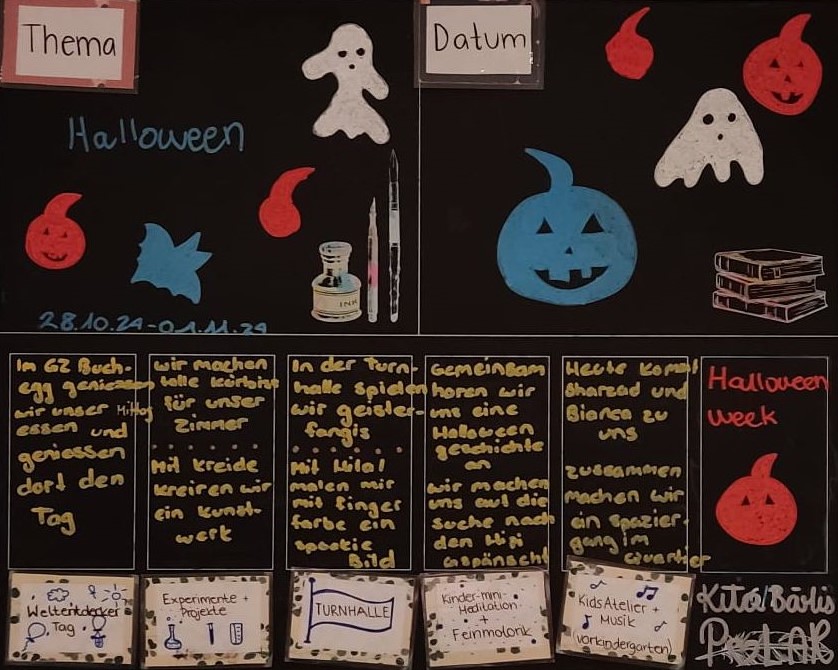 Thema
Halloween
INK
28.10.24-01.11.24
Datum
Im GZ Buch-
egg geniessen
wir unser Mittag
essen und
geniessen
dort den
Tag
wir machen
tolle Kürbise
für unser
Zimmer
Mit Kreide
kreiren wir
ein Kunst-
werk
In der Turn-
halle spielen
wir geister-
fangis
Mit Hilal
malen mir
mit finger
farbe ein
spookie
Bild
Gemeinsam
hören wir
uns eine
Halloween
geschichte
an
wir machen
uns auf die
suche nach
den Mipi
Gspänschtli
Heute kommt
Sharzad und
Bianca zu
uns
zussammen
machen wir
ein spazier-
gang im
Quartier
Halloween
week
Weltentdecker
Tag
Experimente +
Projekte
TURNHALLE
Kinder-mini-
Meditation
+
Feinmotorik
Kids Atelier +
Musik
(Vorkindergarten)
Kita Bärli